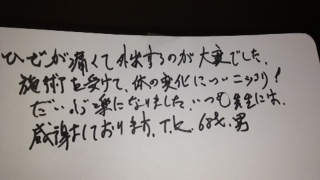 ひざが痛くて外出するのが大変でした、
施術を受けて、体の変化についニッコリ!
だいぶ楽になりました、いつも先生には、
感謝しております、T.K. 68才、男